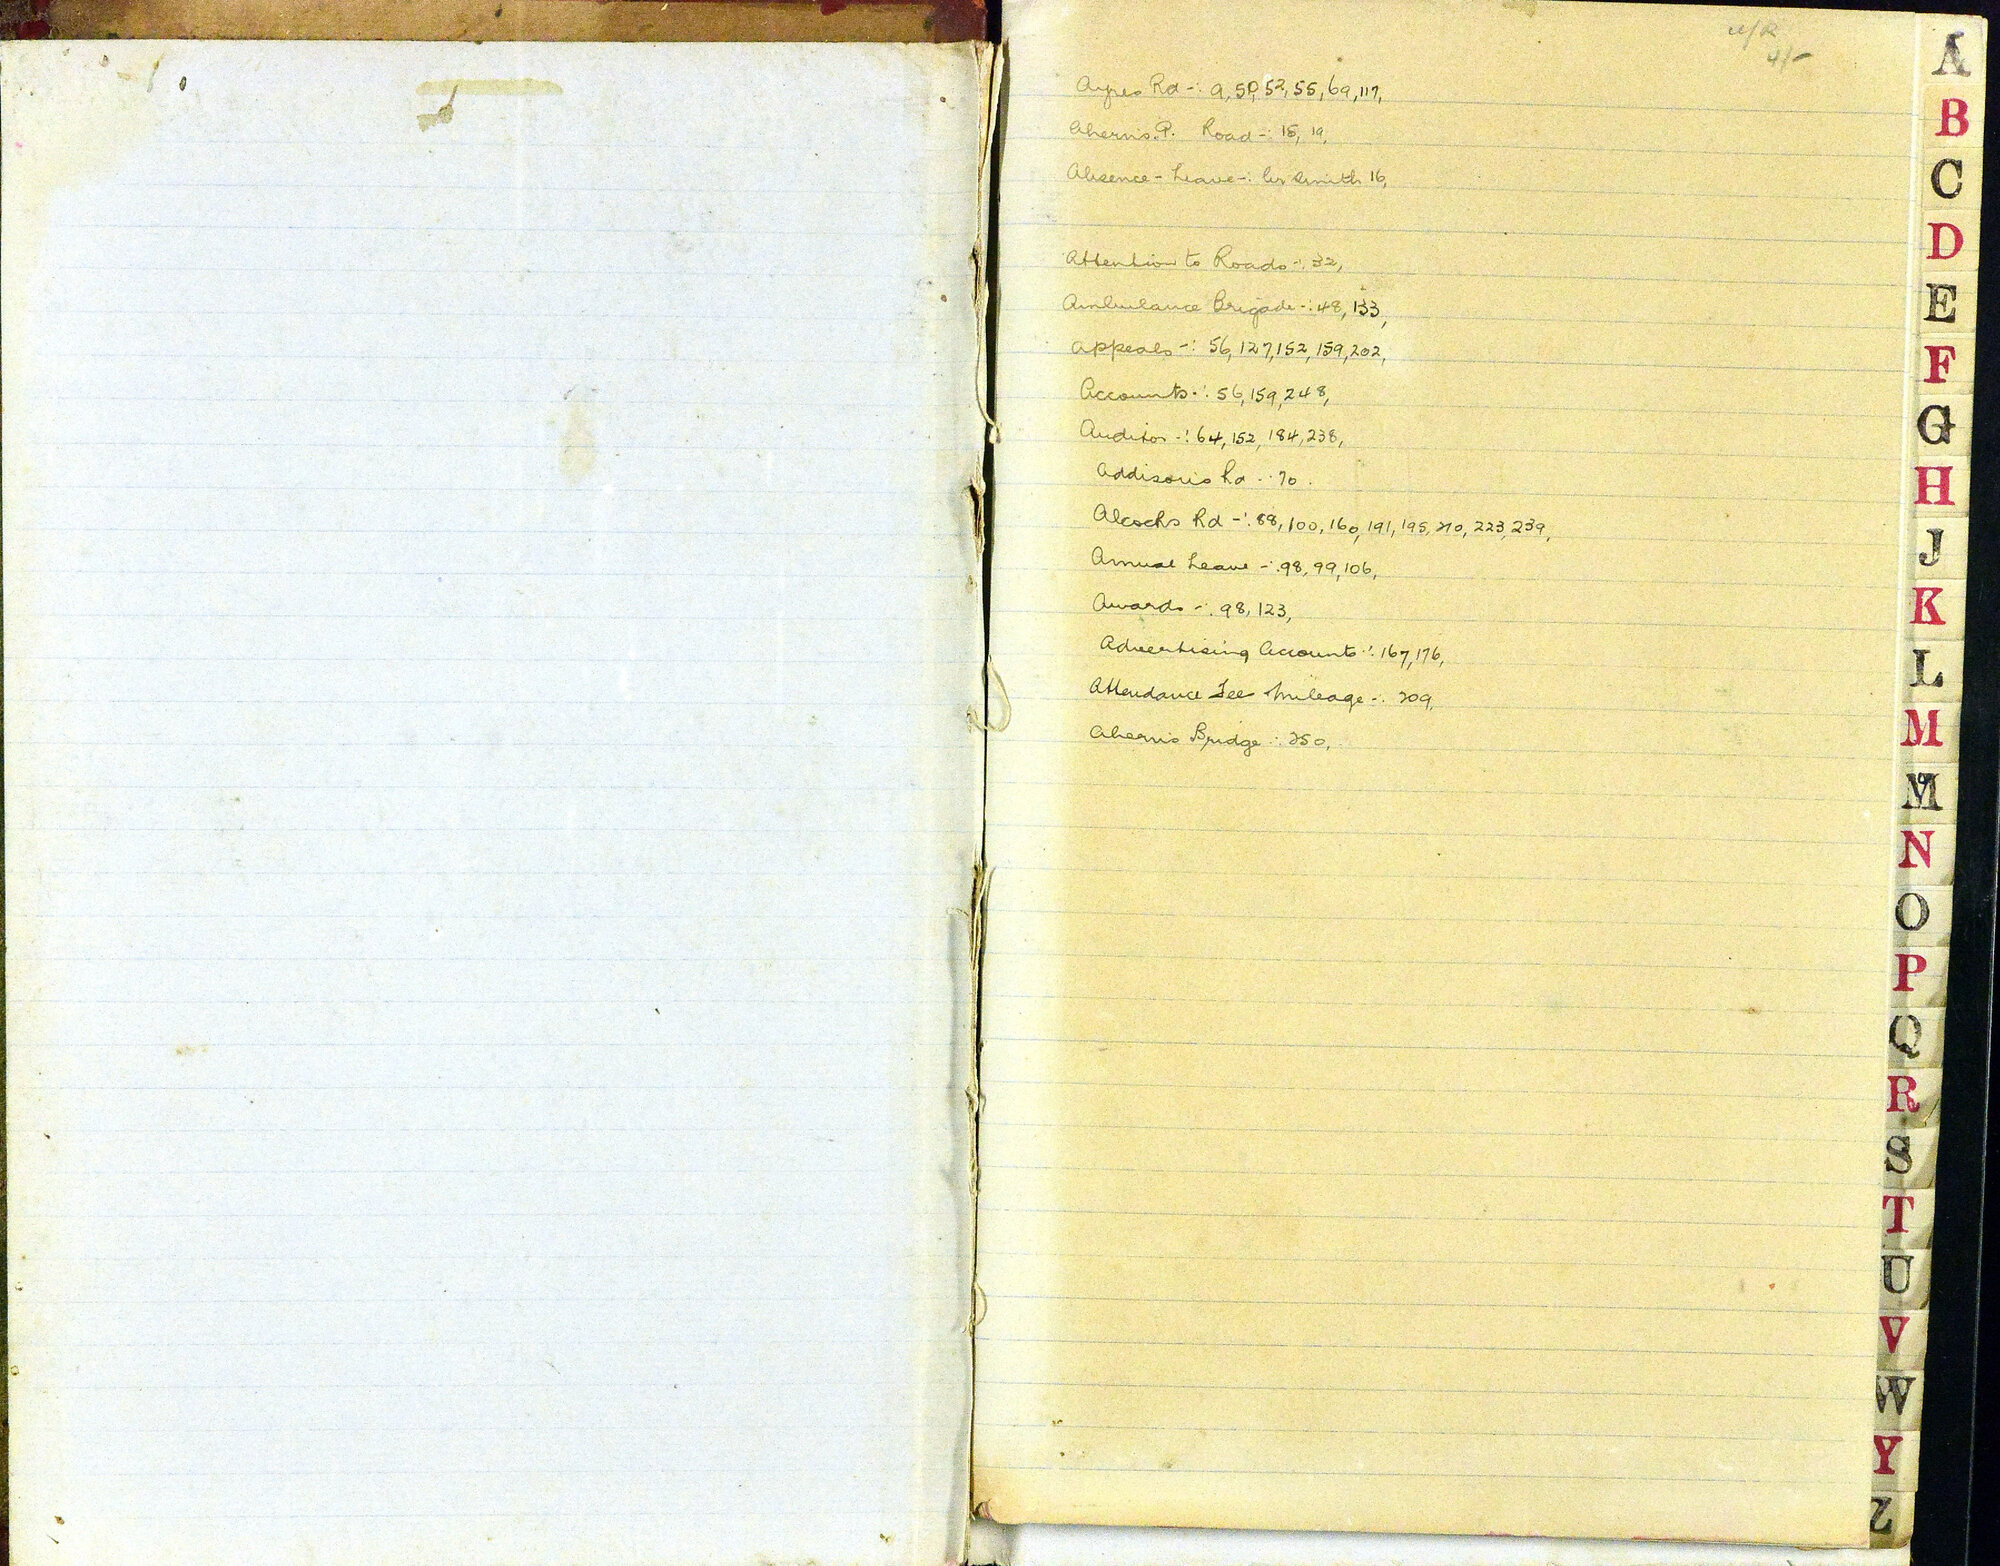 4/-
Ayres Rd -: 9, 50, 52, 55, 69, 117,
Ahern's. P. Road -: 15, 19,
Absence - Leave -: Cr Smith 16,
Attention to Roads -: 32,
Ambulance Brigade -: 48, 133,
Appeals -: 56, 127, 152, 159, 202,
Accounts -: 56, 159, 248,
Auditor -: 64, 152, 184, 238,
Addison's Rd -: 70.
Alcocks Rd -: 88, 100, 160, 191, 195, 210, 223, 239,
Annual Leave -: 98, 99, 106,
Awards -: 98, 123,
Advertising Accounts -: 167, 176,
Attendance Fee Mileage -: 209,
Ahern's Bridge -: 250,
A
B
C
D
E
F
G
H
J
K
L
M
M
N
O
P
Q
R
S
T
U
V
W
Y
Z